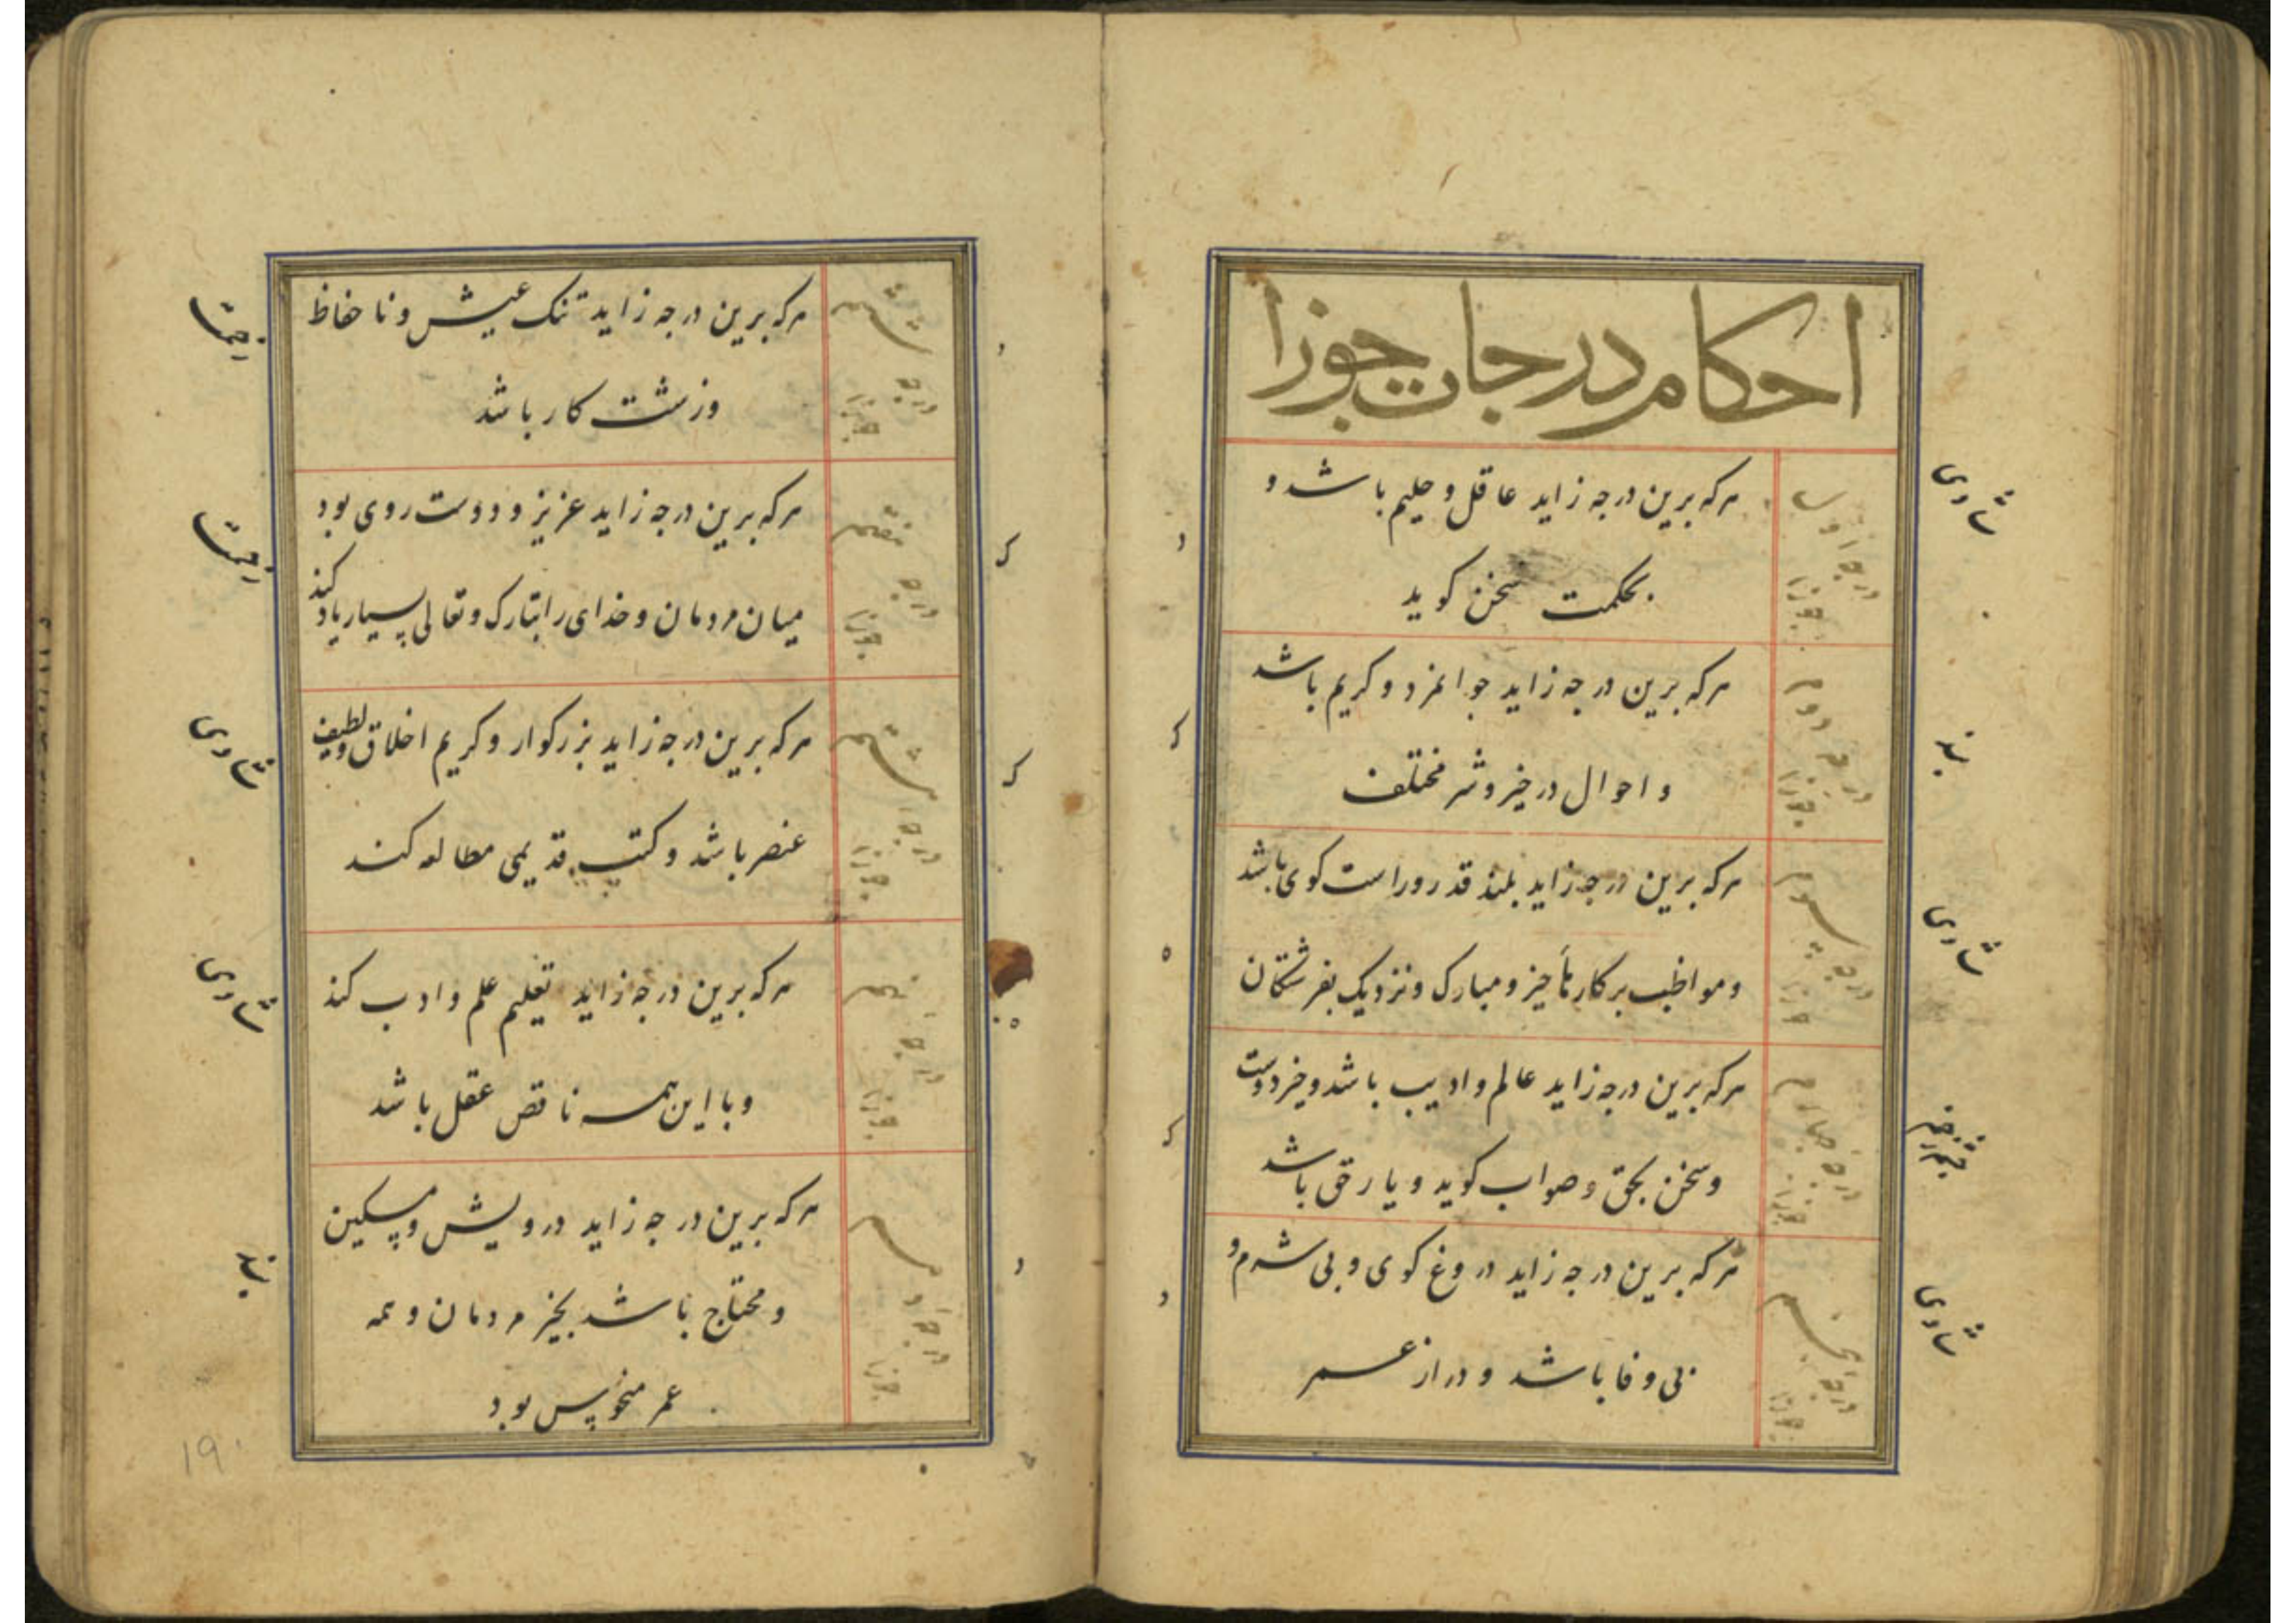 احکام درجات جوزا
درجه اول
جوزا
هرکه برین درجه زاید عاقل و حلیم باشد و
بحکمت سخن کوید
درجه دوم
جوزا
هرکه برین درجه زاید جوانمرد و کریم باشد
و احوال در خیر و شر مختلف
درجه سوم
جوزا
هرکه برین درجه زاید بلند قدر و راست کوی باشد
و مواظب بر کارها خیر و مبارک و نزدیک بفرشتکان
درجه چهارم
جوزا
هرکه برین درجه زاید عالم و ادیب باشد و خرد دوست
و سخن بحق و صواب کوید و یار حق باشد
درجه پنجم
جوزا
هرکه برین درجه زاید دروغ کوی و بی شرم و
بی وفا باشد و دراز عمر
ششم
درجه
جوزا
هرکه برین درجه زاید تنک عیش و نا حفاظ
و زشت کار باشد
هفتم
درجه
جوزا
هرکه برین درجه زاید عزیز و دوست روی بود
میان مردمان و خدای را تبارک و تعالی بسیار یاد کند
هشتم
درجه
جوزا
هرکه برین درجه زاید بزرکوار و کریم اخلاق و لطیف
عنصر باشد و کتب قدیمی مطالعه کند
نهم
درجه
جوزا
هرکه برین درجه زاید تعلیم علم و ادب کند
و با این همه ناقص عقل باشد
دهم
درجه
جوزا
هرکه برین درجه زاید درویش و مسکین
و محتاج باشد بخیر مردمان و همه
عمر منحوس بود
19